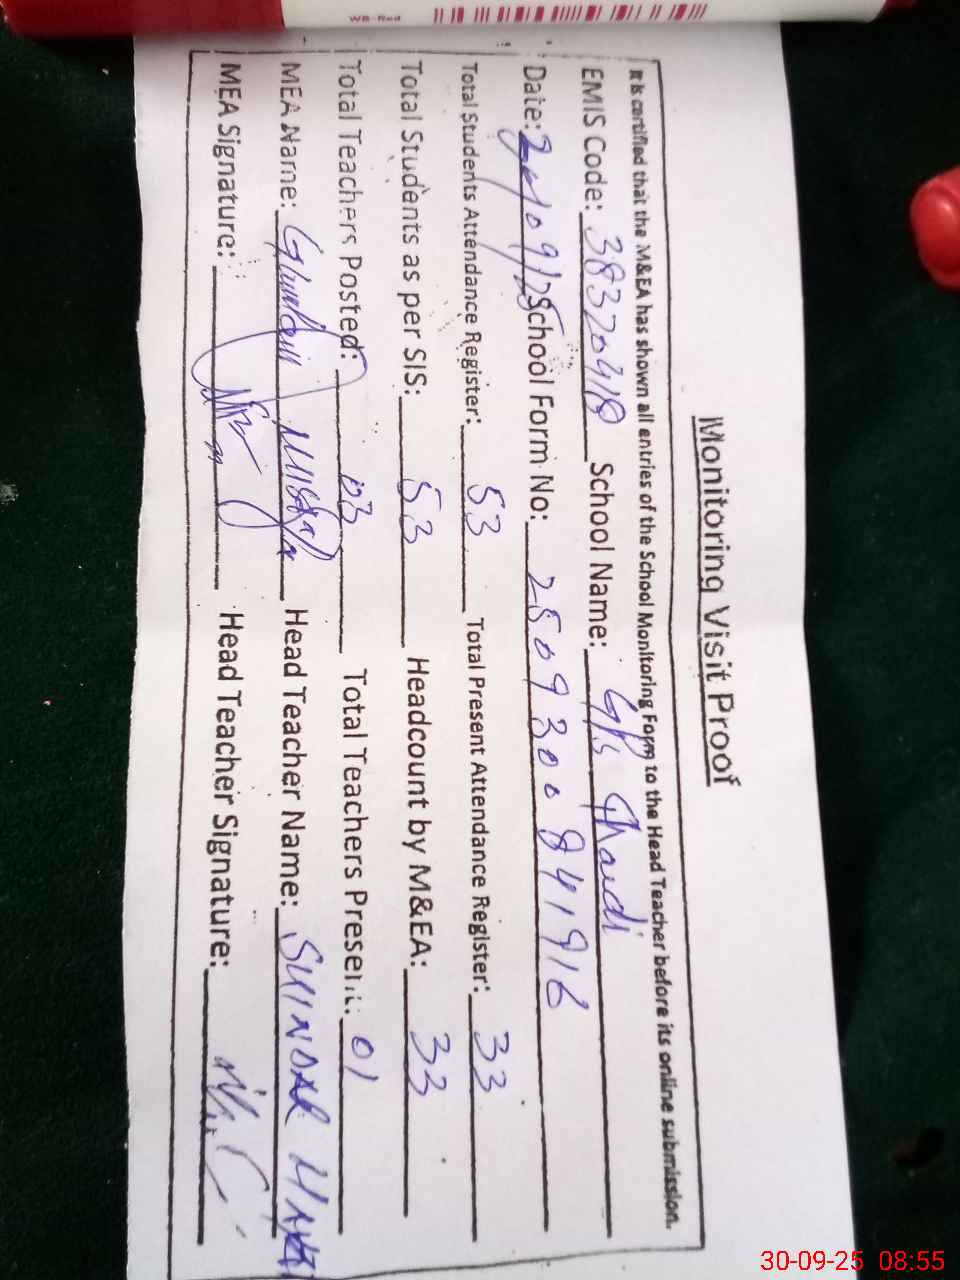 WB-Red
Monitoring Visit Proof
It is certified that the M&EA has shown all entries of the School Monitoring Form to the Head Teacher before its online submission.
EMIS Code: 38320418 School Name: GPS
Date: School Form No: 2509300841916
Total Students Attendance Register: 53 Total Present Attendance Register: 33
Total Students as per SIS: 53 Headcount by M&EA: 33
Total Teachers Posted: 03 Total Teachers Present: 01
MEA Name: Head Teacher Name:
MEA Signature: Head Teacher Signature:
30-09-25 08:55